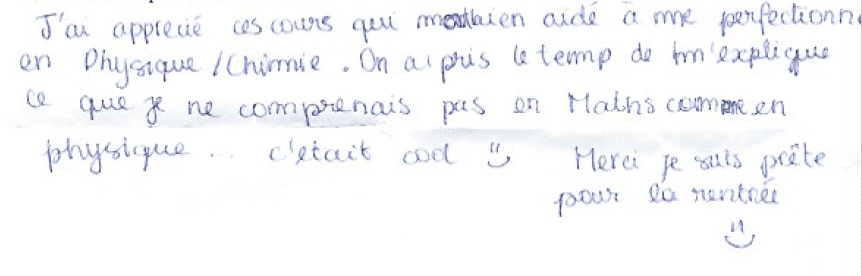 J'ai apprecié ces cours qui m'ontaien aidé à me perfectionn
en Physique / Chimie. On a pris le temp de m'explique
ce que je ne comprenais pas en Maths comme en
physique ... c'était cool
Merci je suis prête
pour la rentrée